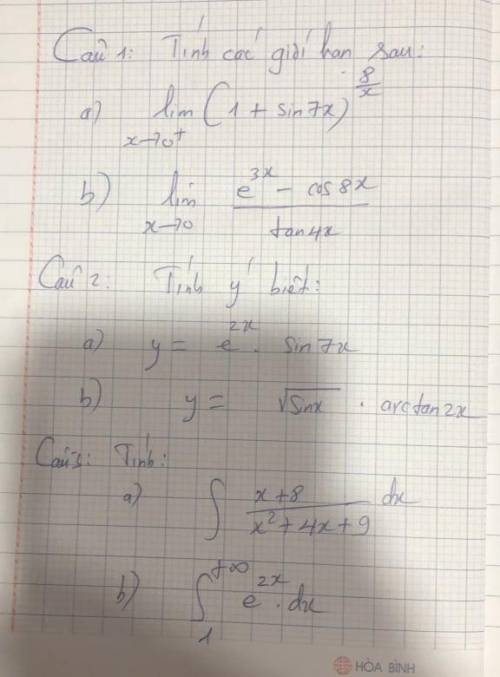 Câu 1: Tính các giới hạn sau:
a) lim x→0⁺ (1 + sin7x)^(8/x)
b) lim x→0 (e^(3x) - cos8x)/(tan4x)
Câu 2: Tính y' biết:
a) y = e^(2x) . sin7x
b) y = √sinx . arctan2x
Câu 3: Tính:
a) ∫ (x+8)/(x²+4x+9) dx
b) ∫₁^(+∞) e^(2x) . dx
HÒA BÌNH